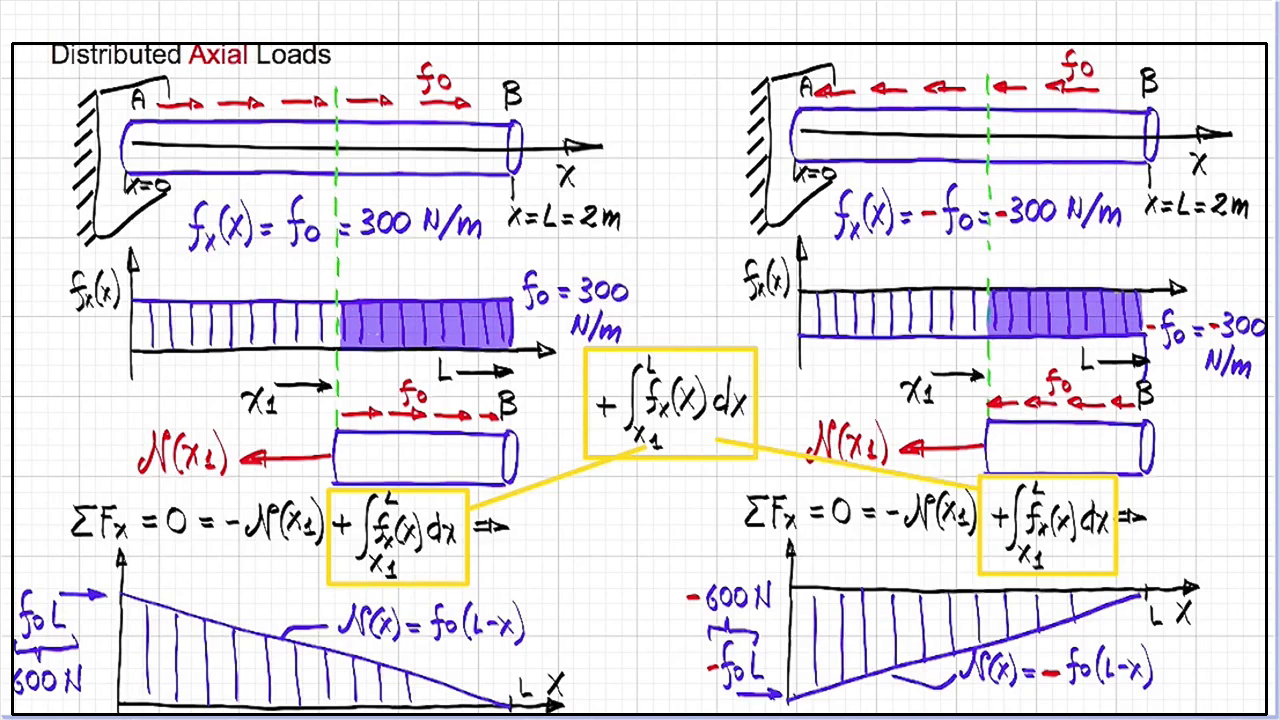 Distributed Axial Loads
f0
A
B
x=0
X
fx(x) = f0 = 300 N/m
X=L=2m
fx(x)
f0 = 300
N/m
L
x1
f0
B
N(x1)
ΣFx = 0 = -N(x1) + ∫x1^L fx(x) dx ⇒
f0L
600 N
N(x) = f0(L-x)
L X
+ ∫x1^L fx(x) dx
f0
A
B
x=0
X
fx(x) = -f0 = -300 N/m
X=L=2m
fx(x)
-f0 = -300
N/m
L
x1
f0
B
N(x1)
ΣFx = 0 = -N(x1) + ∫x1^L fx(x) dx ⇒
-600 N
-f0L
L X
N(x) = -f0(L-x)